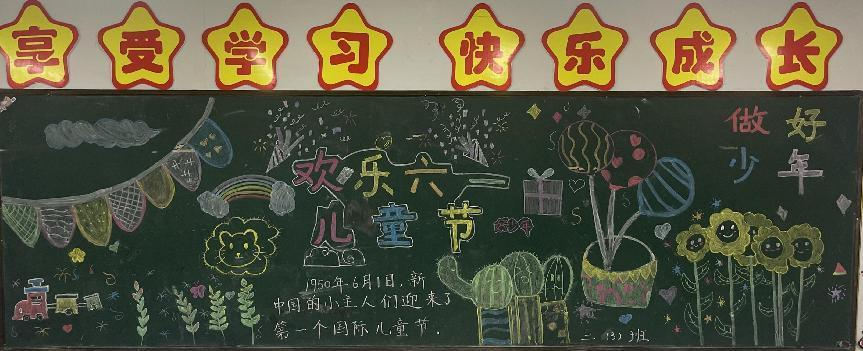 享受学习 快乐成长
做好
少年
欢乐六一
儿童节
1950年6月1日,新
中国的小主人们迎来了
第一个国际儿童节.
二.(3)班